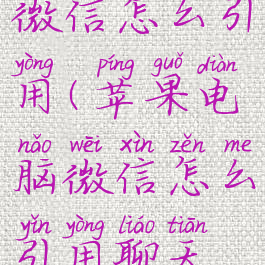 微信怎么引
yòng píng guǒ diàn
用(苹果电
nǎo wēi xìn zěn me
脑微信怎么
yǐn yòng liáo tiān
引用聊天